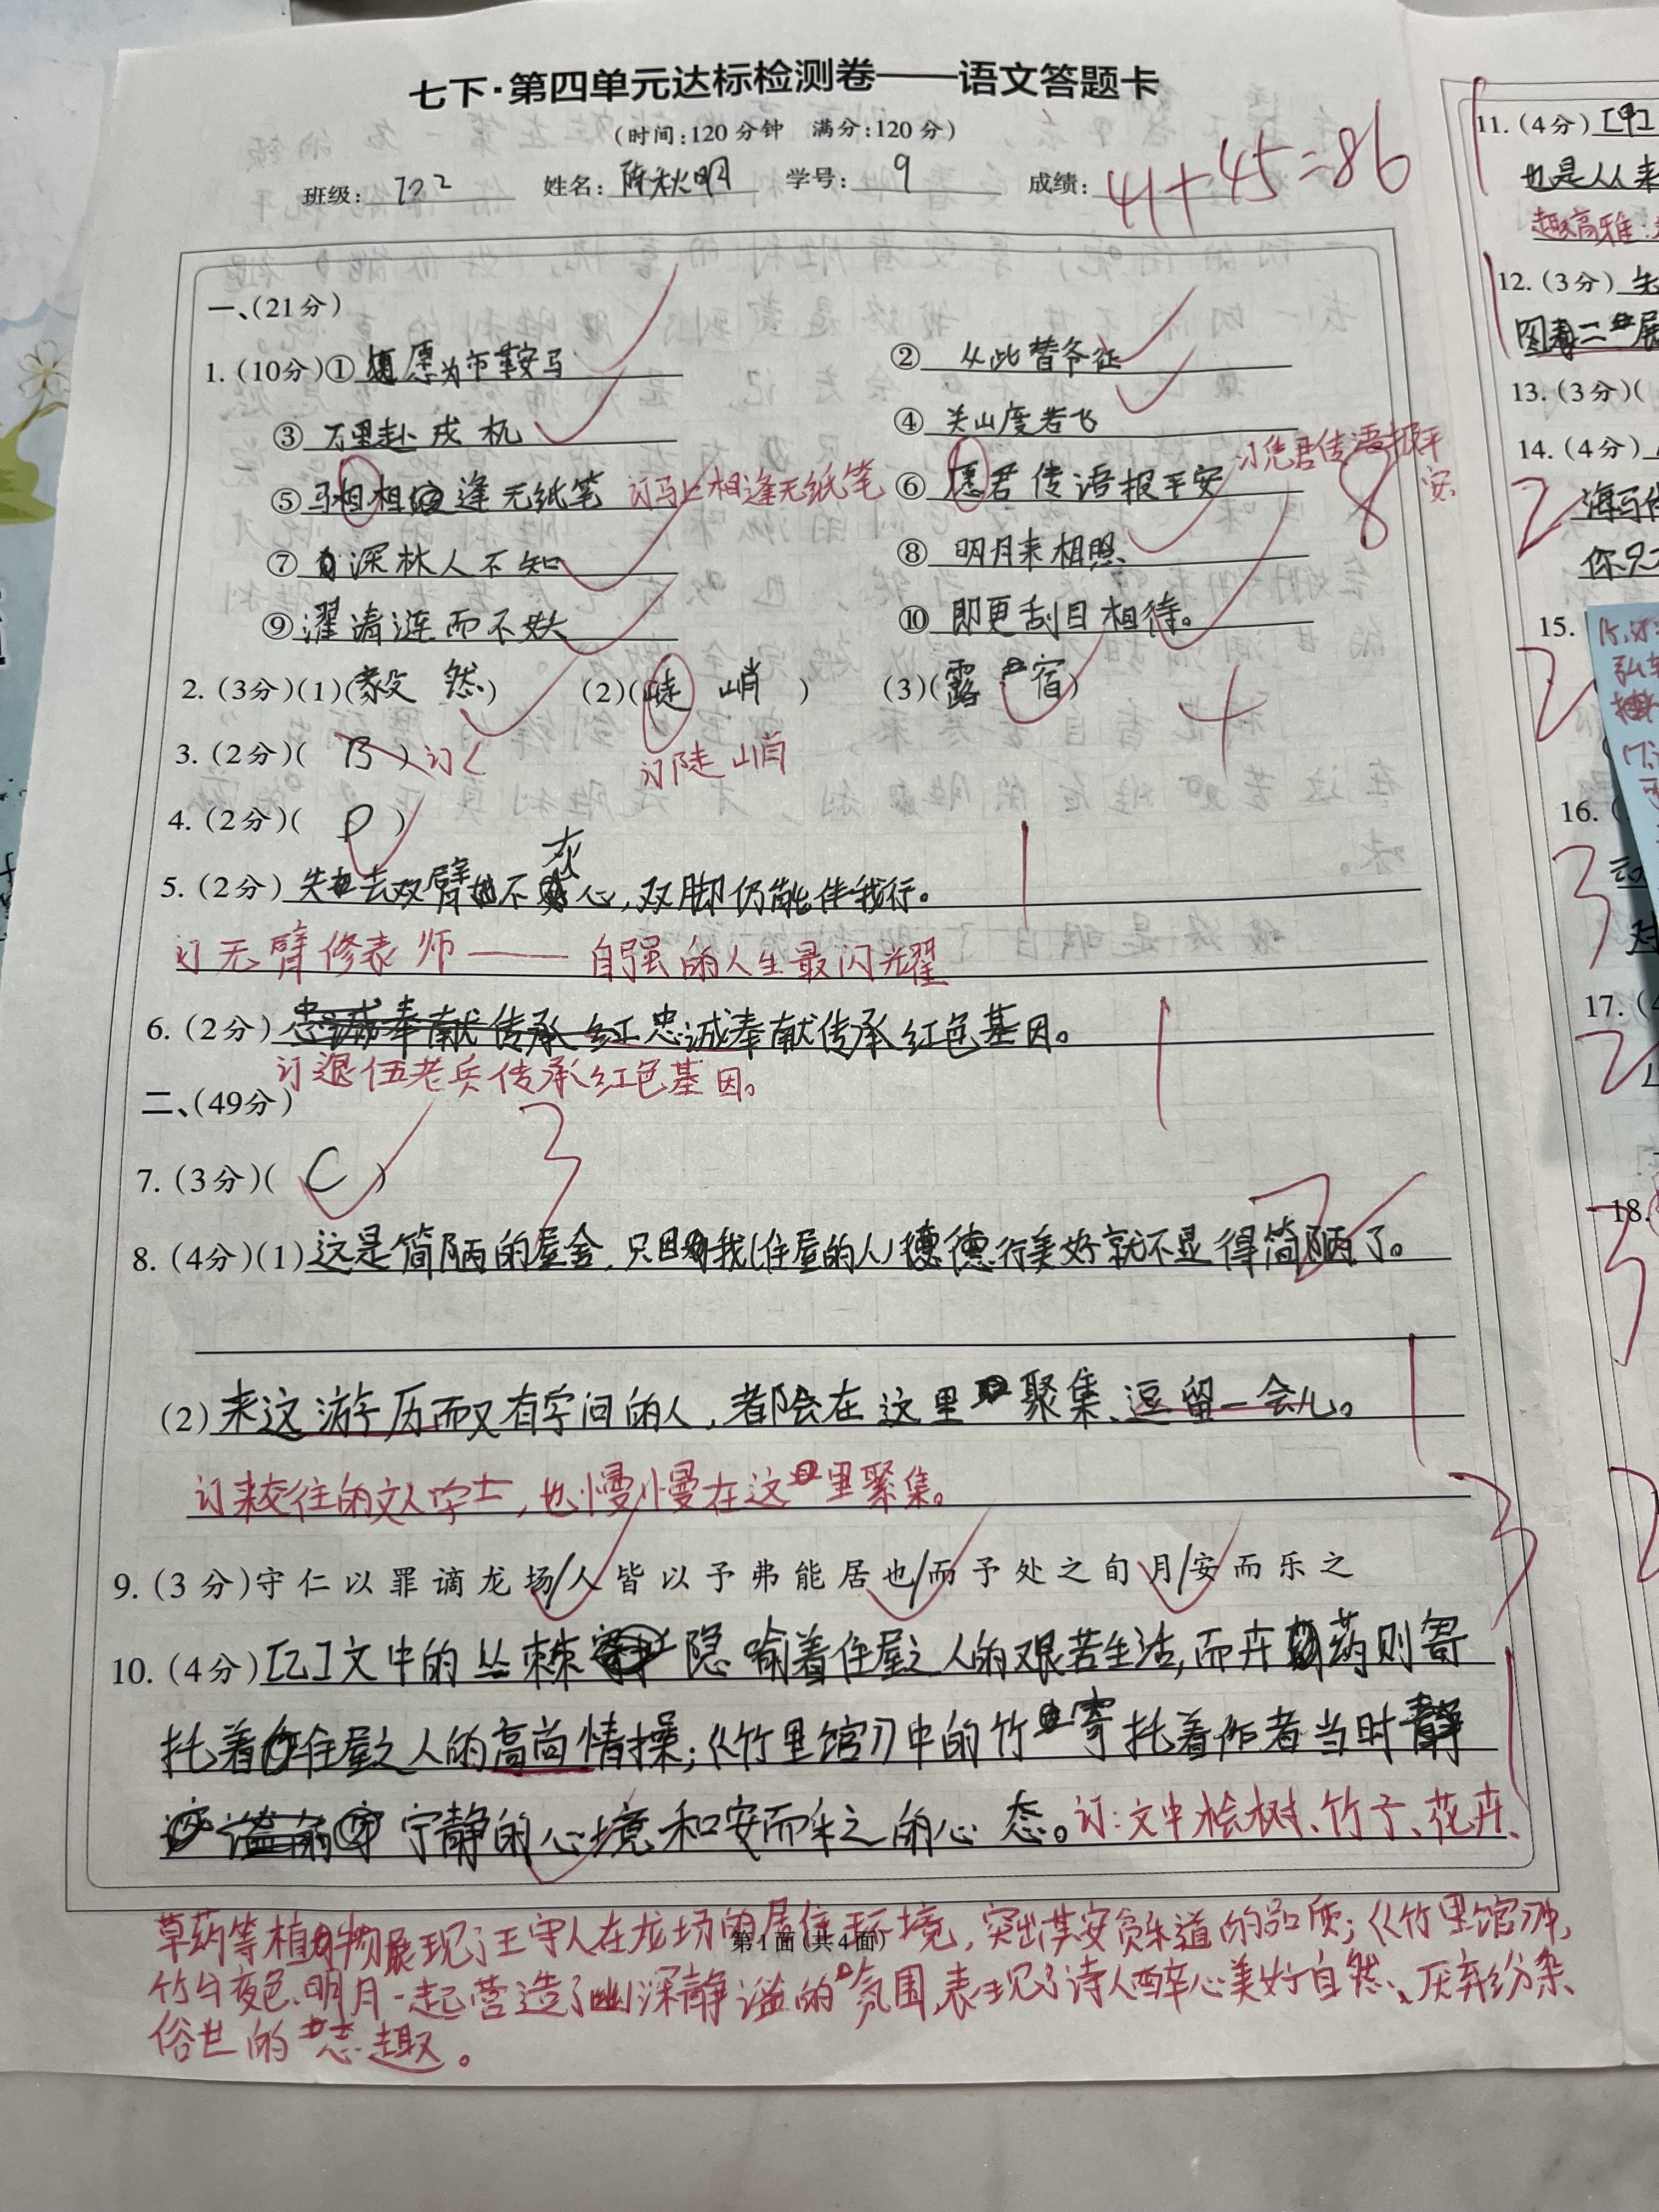 七下·第四单元达标检测卷——语文答题卡
(时间:120分钟 满分:120分)
班级: 702 姓名: 陈秋明 学号: 9 成绩: 41+45=86
一、(21分)
1. (10分)① 愿为市鞍马 ② 从此替爷征
③ 万里赴戎机 ④ 关山度若飞
⑤ 马相相逢无纸笔 订马上相逢无纸笔 ⑥ 愿君传语报平安 订凭君传语报平安
8
⑦ 深林人不知 ⑧ 明月来相照
⑨ 濯清涟而不妖 ⑩ 即更刮目相待。
2. (3分)(1)(毅然) (2)( 峭 ) (3)(露宿)
4
订陡峭
3. (2分)( B ) 订C
4. (2分)( D )
5. (2分) 失去双臂不灰心,双脚仍能伴我行。
1
订无臂修表师——自强的人生最闪耀
6. (2分) 忠诚奉献传承红 忠诚奉献传承红色基因。
1
订退伍老兵传承红色基因。
二、(49分)
7. (3分)( C )
3
8. (4分)(1) 这是简陋的屋舍,只因为我(住屋的人)德行美好就不显得简陋了。
2
(2) 来这游历而又有学问的人,都会在这里聚集、逗留一会儿。
1
订来往的文人学士,也慢慢在这里聚集。
9. (3分)守仁以罪谪龙场/人皆以予弗能居也/而予处之旬月/安而乐之
3
10. (4分)[乙]文中的丛棘隐喻着住屋之人的艰苦生活,而卉药则寄
托着住屋之人的高尚情操;《竹里馆》中的竹寄托着作者当时静
宁静的心境和安而乐之的心态。订:文中桧树、竹子、花卉、
1
草药等植物展现了王守人在龙场的居住环境,突出其安贫乐道的品质;《竹里馆》中,
第1面(共4面)
竹与夜色、明月一起营造了幽深静谧的氛围,表现了诗人醉心美好自然、厌弃纷杂
俗世的志趣。
11. (4分) [甲]
也是人从来
趣高雅;
12. (3分)
13. (3分)(
14. (4分)
2
你只
15.
2
16. (
3
17. (4
2
18.
3
2